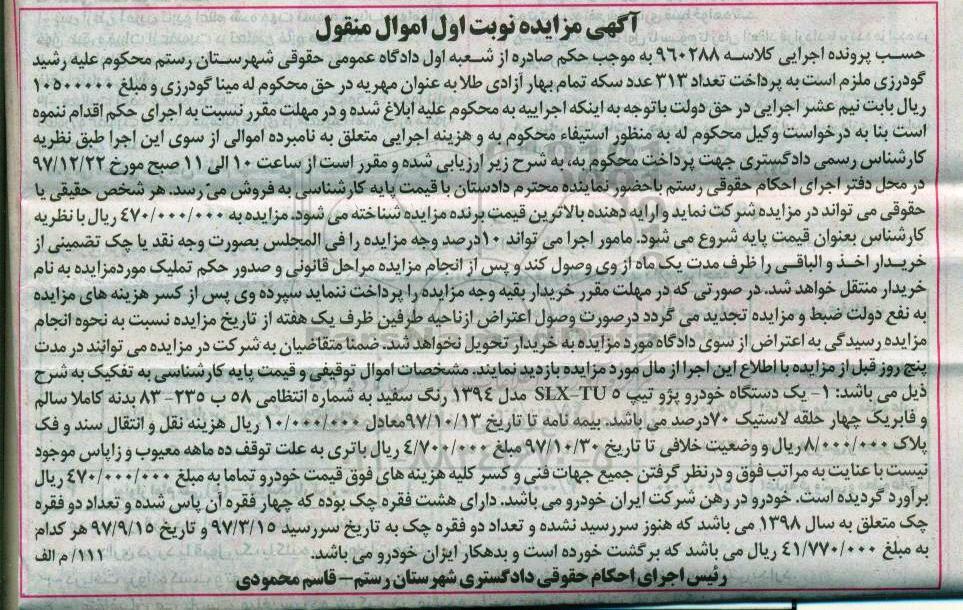 آگهی مزایده نوبت اول اموال منقول
حسب پرونده اجرایی کلاسه ۹۶۰۲۸۸ به موجب حکم صادره از شعبه اول دادگاه عمومی حقوقی شهرستان رستم محکوم علیه رشید
گودرزی ملزم است به پرداخت تعداد ۳۱۳ عدد سکه تمام بهار آزادی طلا به عنوان مهریه در حق محکوم له مینا گودرزی و مبلغ ۱۰۵۰۰۰۰۰
ریال بابت نیم عشر اجرایی در حق دولت باتوجه به اینکه اجراییه به محکوم علیه ابلاغ شده و در مهلت مقرر نسبت به اجرای حکم اقدام ننموده
است بنا به درخواست وکیل محکوم له به منظور استیفاء محکوم به و هزینه اجرایی متعلق به نامبرده اموالی از سوی این اجرا طبق نظریه
کارشناس رسمی دادگستری جهت پرداخت محکوم به، به شرح زیر ارزیابی شده و مقرر است از ساعت ۱۰ الی ۱۱ صبح مورخ ۹۷/۱۲/۲۲
در محل دفتر اجرای احکام حقوقی رستم باحضور نماینده محترم دادستان با قیمت پایه کارشناسی به فروش می رسد. هر شخص حقیقی یا
حقوقی می تواند در مزایده شرکت نماید و ارایه دهنده بالاترین قیمت برنده مزایده شناخته می شود. مزایده به ۴۷۰/۰۰۰/۰۰۰ ریال با نظریه
کارشناس بعنوان قیمت پایه شروع می شود. مامور اجرا می تواند ۱۰درصد وجه مزایده را فی المجلس بصورت وجه نقد یا چک تضمینی از
خریدار اخذ و الباقی را ظرف مدت یک ماه از وی وصول کند و پس از انجام مزایده مراحل قانونی و صدور حکم تملیک موردمزایده به نام
خریدار منتقل خواهد شد. در صورتی که در مهلت مقرر خریدار بقیه وجه مزایده را پرداخت ننماید سپرده وی پس از کسر هزینه های مزایده
به نفع دولت ضبط و مزایده تجدید می گردد درصورت وصول اعتراض ازناحیه طرفین ظرف یک هفته از تاریخ مزایده نسبت به نحوه انجام
مزایده رسیدگی به اعتراض از سوی دادگاه مورد مزایده به خریدار تحویل نخواهد شد. ضمنا متقاضیان به شرکت در مزایده می توانند در مدت
پنج روز قبل از مزایده با اطلاع این اجرا از مال مورد مزایده بازدید نمایند. مشخصات اموال توقیفی و قیمت پایه کارشناسی به تفکیک به شرح
ذیل می باشد: ۱- یک دستگاه خودرو پژو تیپ SLX-TU ۵ مدل ۱۳۹۴ رنگ سفید به شماره انتظامی ۵۸ ب ۲۳۵- ۸۳ بدنه کاملا سالم
و فابریک چهار حلقه لاستیک ۷۰درصد می باشد. بیمه نامه تا تاریخ ۹۷/۱۰/۱۳معادل ۱۰/۰۰۰/۰۰۰ ریال هزینه نقل و انتقال سند و فک
پلاک ۸/۰۰۰/۰۰۰ ریال و وضعیت خلافی تا تاریخ ۹۷/۱۰/۳۰ مبلغ ۴/۷۰۰/۰۰۰ ریال باتری به علت توقف ده ماهه معیوب و زاپاس موجود
نیست با عنایت به مراتب فوق و درنظر گرفتن جمیع جهات فنی و کسر کلیه هزینه های فوق قیمت خودرو تماما به مبلغ ۴۷۰/۰۰۰/۰۰۰ ریال
برآورد گردیده است. خودرو در رهن شرکت ایران خودرو می باشد. دارای هشت فقره چک بوده که چهار فقره آن پاس شده و تعداد دو فقره
چک متعلق به سال ۱۳۹۸ می باشد که هنوز سررسید نشده و تعداد دو فقره چک به تاریخ سررسید ۹۷/۳/۱۵ و تاریخ ۹۷/۹/۱۵ هر کدام
به مبلغ ۴۱/۷۷۰/۰۰۰ ریال می باشد که برگشت خورده است و بدهکار ایران خودرو می باشد. ۱۱۱/ م الف
رئیس اجرای احکام حقوقی دادگستری شهرستان رستم- قاسم محمودی